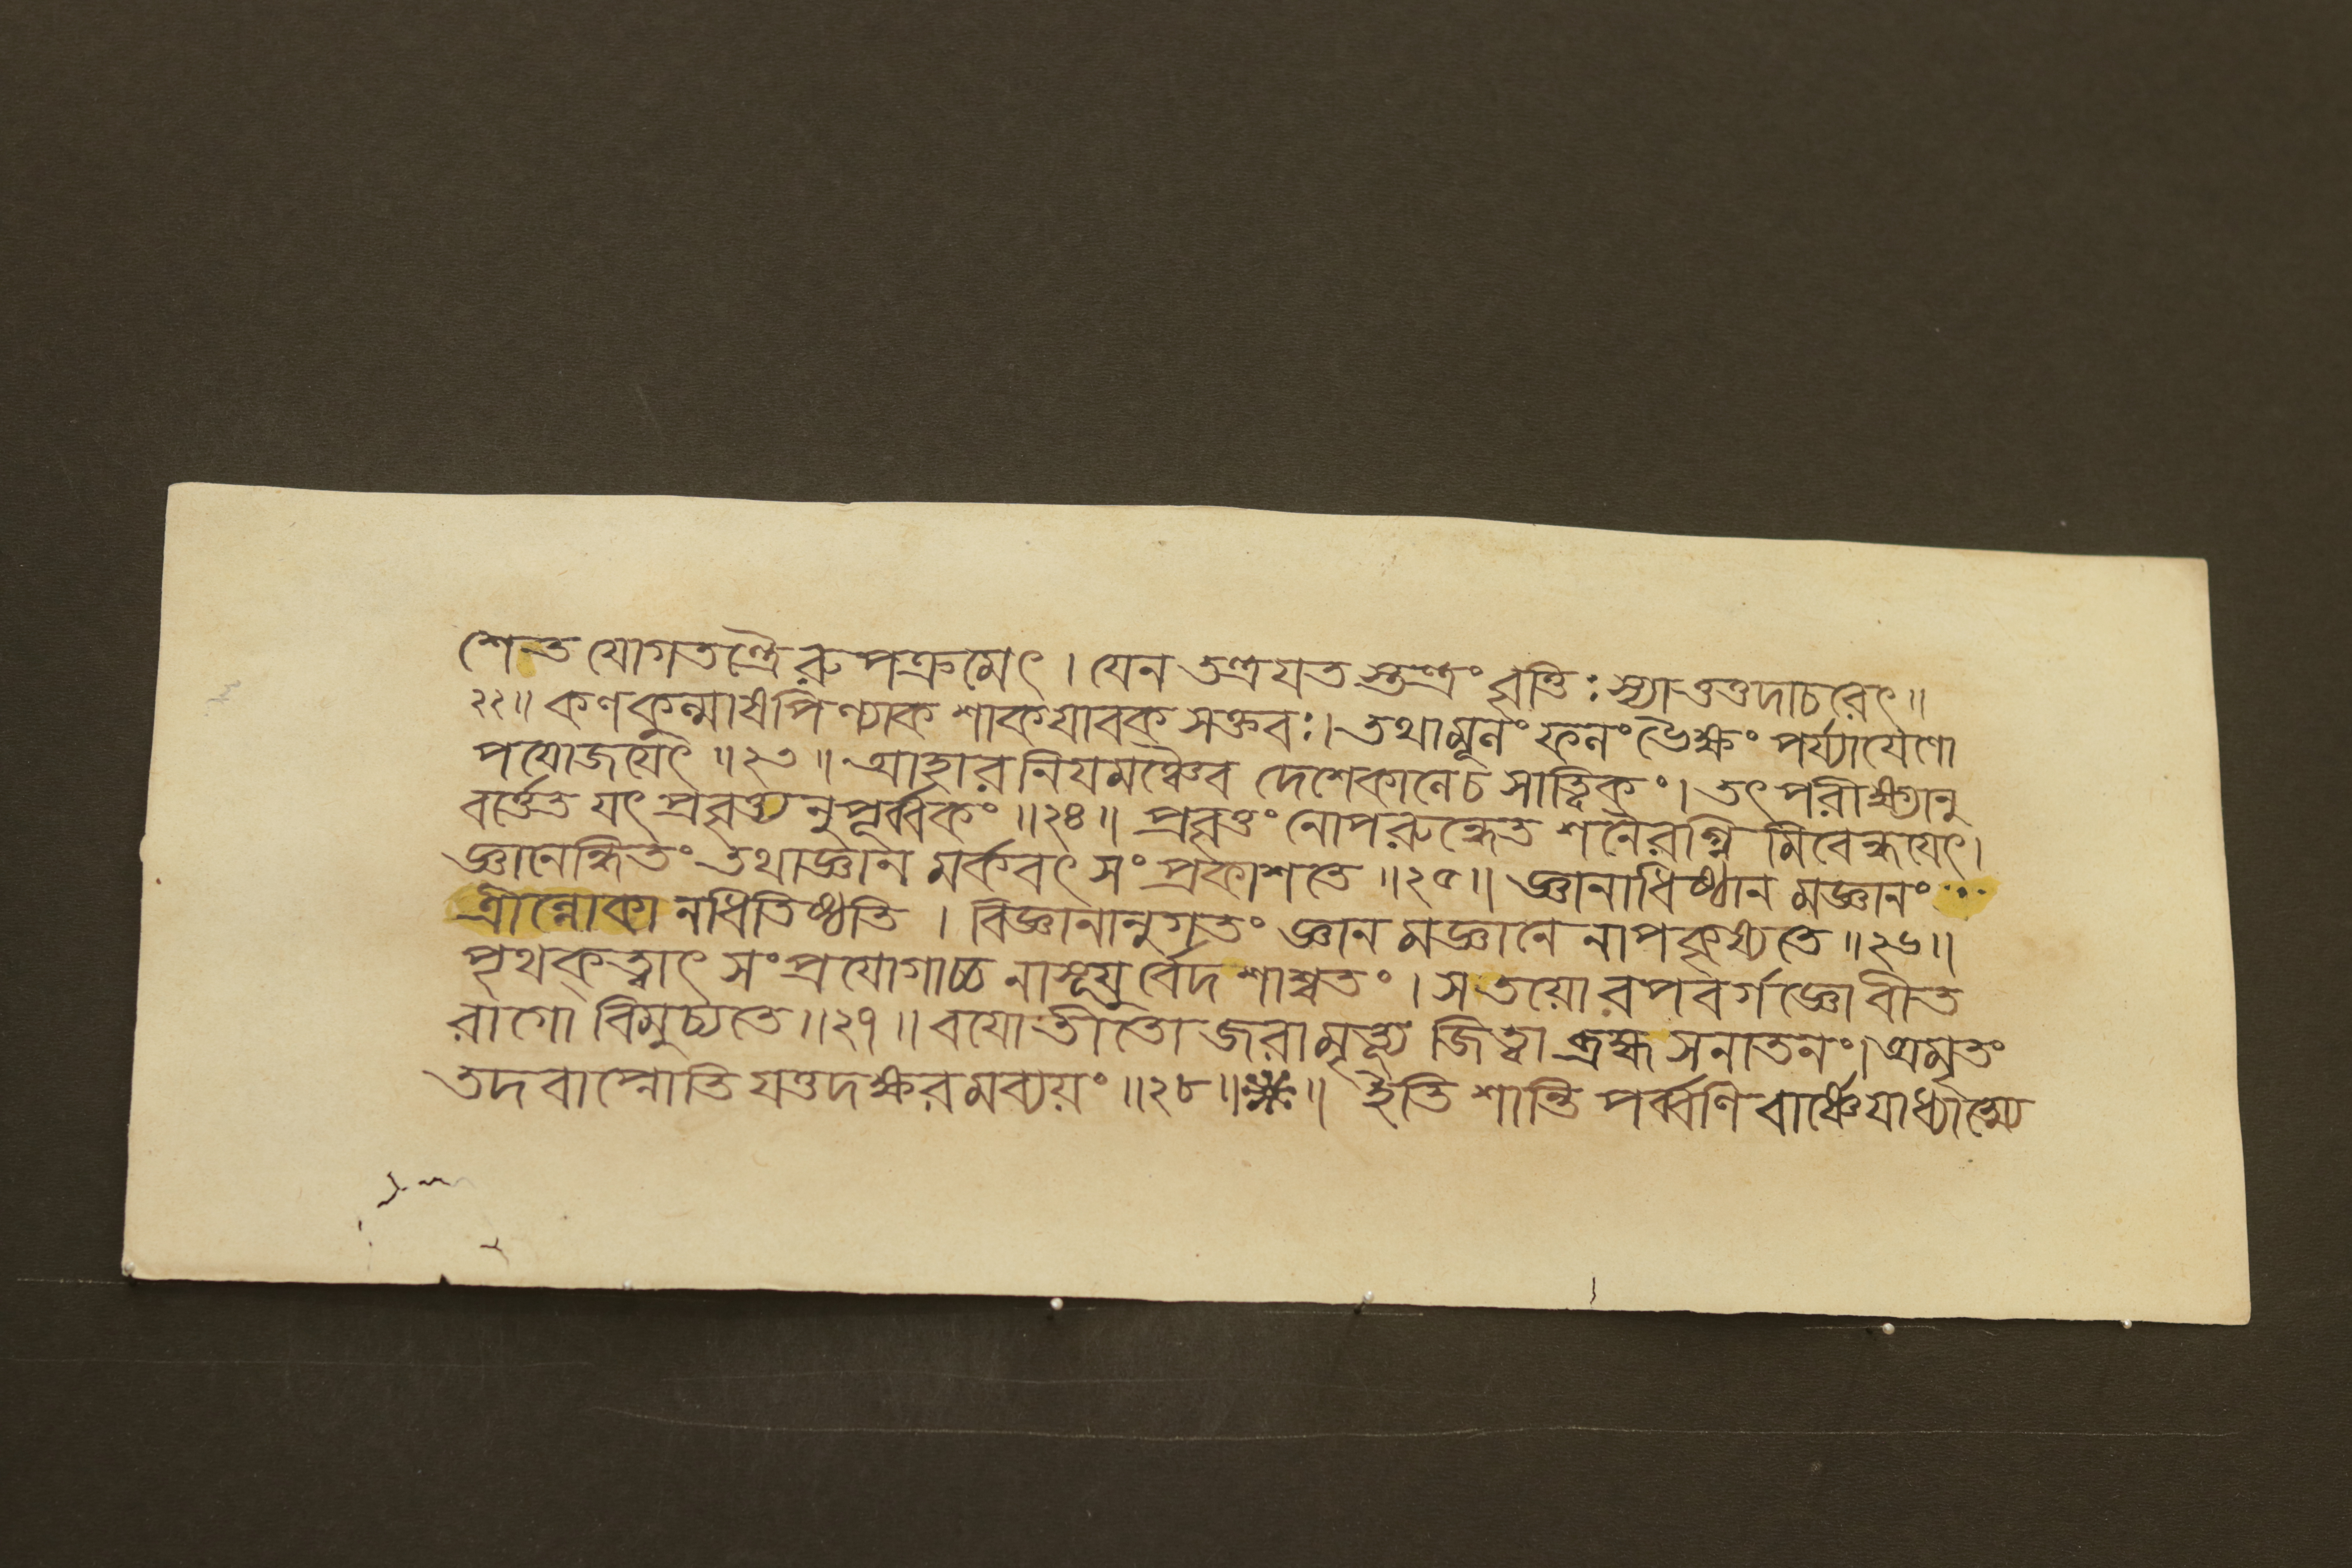 শেত যোগতন্ত্রৈরুপক্রমেৎ । যেন তন্ত্রযতস্তন্ত্রং বৃত্তিঃ স্যাত্তত্তদাচরেৎ ॥
২২॥ কণকুন্মাষপিণ্যাক শাকযাবক সক্তবঃ। তথামূনং ফনং ভৈক্ষং পর্য্যাযেণো
পযোজযেৎ ॥২৩॥ আহারনিযমঞ্চৈব দেশেকানেচ সাত্ত্বিকং। তৎ পরীক্ষ্যানু
বর্ত্তেত যৎ প্রবৃত্ত্যনুপূর্ব্বকং ॥২৪॥ প্রবৃত্তং নোপরুন্ধেত শনৈরগ্নি মিবেন্ধযেৎ।
জ্ঞানেন্ধিতং তথাজ্ঞান মর্কবৎ সংপ্রকাশতে ॥২৫॥ জ্ঞানাধিষ্ঠান মজ্ঞানং
ত্রীন্নোকানধিতিষ্ঠতি । বিজ্ঞানানুগতং জ্ঞান মজ্ঞানে নাপকৃষ্যতে ॥২৬॥
পৃথক্ত্বাৎ সংপ্রযোগাচ্চ নাসূযুর্বেদ শাশ্বতং । স তয়োরপবর্গজ্ঞো বীত
রাগো বিমুচ্যতে ॥২৭॥ বযোতীতো জরামৃত্যূ জিত্বা ব্রহ্ম সনাতনং। অমৃতং
তদবাপ্নোতি যত্তদক্ষরমব্যয়ং ॥২৮॥※॥ ইতি শান্তি পর্ব্বণি বার্ষ্ণেযাধ্যাত্ম্যে